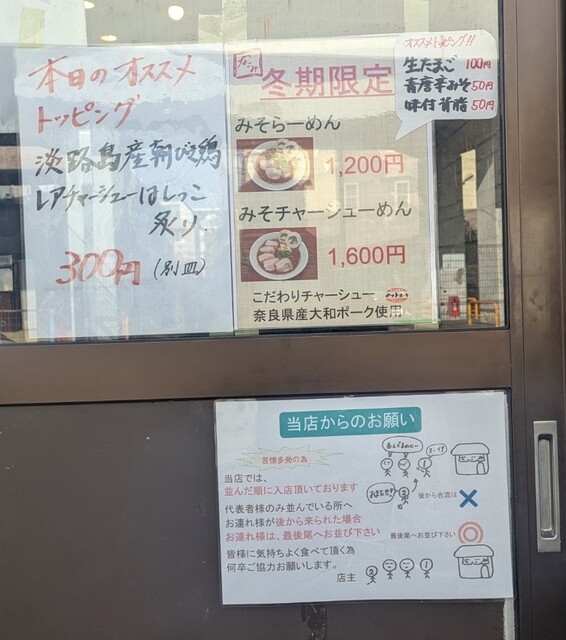 本日のオススメ
トッピング
淡路島産朝びき鶏
レアチャーシューはしっこ
炙り
300円(別皿)
冬期限定
オススメトッピング!!
生たまご 100円
青唐辛みそ 50円
味付背脂 50円
みそらーめん
1,200円
みそチャーシューめん
1,600円
こだわりチャーシュー
奈良県産大和ポーク使用
当店からのお願い
苦情多発の為
当店では、
並んだ順に入店頂いております
代表者様のみ並んでいる所へ
お連れ様が後から来られた場合
お連れ様は、最後尾へお並び下さい
皆様に気持ちよく食べて頂く為
何卒ご協力お願いします。
店主
後から合流は
最後尾へお並び下さい